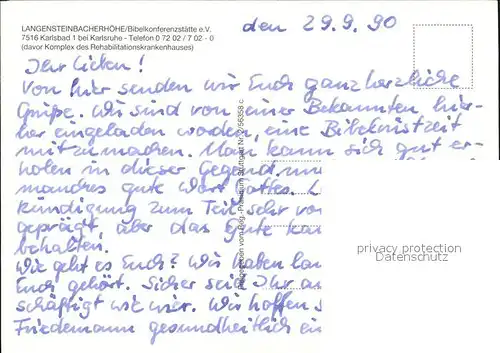 LANGENSTEINBACHERHÖHE/Bibelkonferenzstätte e.V.
7516 Karlsbad 1 bei Karlsruhe - Telefon 0 72 02 / 7 02 - 0
(davor Komplex des Rehabilitationskrankenhauses)
den 29.9.90
Ihr Lieben!
Von hier senden wir Euch ganz herzliche
Grüße. Wir sind von einer Bekannten hier-
her eingeladen worden, eine Bibelfreizeit
mitzumachen. Man kann sich gut er-
holen in dieser Gegend, und
manches gute Wort Gottes.
kündigung zum Teil sehr von
geprägt, aber das Gute kan
behalten.
Wie geht es Euch? Wir haben lan
Euch gehört. Sicher seid Ihr au
schäftigt wie wir. Wir hoffen
Friedemann gesundheitlich ein
privacy protection
Datenschutz